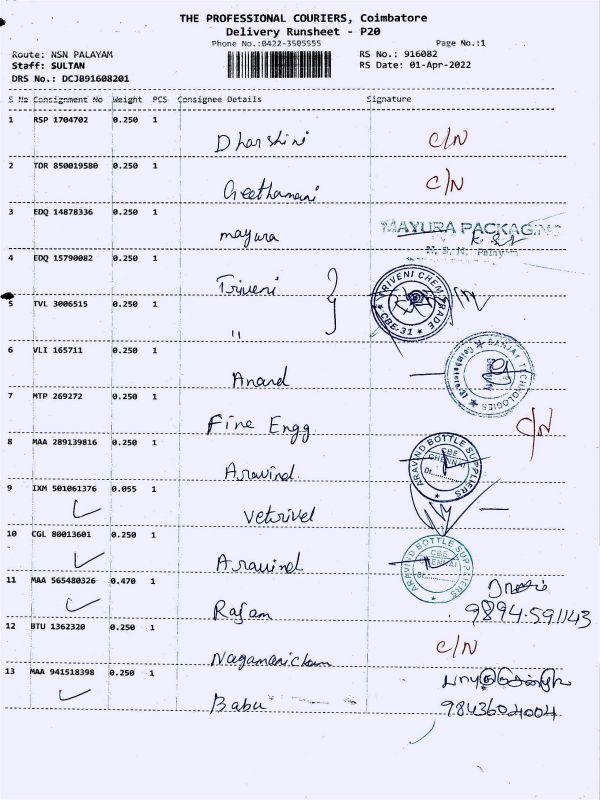 THE PROFESSIONAL COURIERS, Coimbatore
Delivery Runsheet - P20
Phone No.:0422-3505555 Page No.:1
Route: NSN PALAYAM RS No.: 916082
Staff: SULTAN RS Date: 01-Apr-2022
DRS No.: DCJB91608201
S No Consignment No Weight PCS Consignee Details Signature
1 RSP 1704702 0.250 1
Dharshini C/N
2 TDR 850019580 0.250 1
Geethamani C/N
3 EDQ 14878336 0.250 1
mayura MAYURA PACKAGING
N. S. N. Palayam
4 EDQ 15790082 0.250 1
Triveni TRIVENI CHEM TRADE CBE-31
5 TVL 3006515 0.250 1
"
6 VLI 165711 0.250 1
Anand SANJAY TECHNOLOGIES
7 MTP 269272 0.250 1
Fine Engg C/N
8 MAA 289139816 0.250 1
Aravind. ARAVIND BOTTLE SUPPLIERS CBE CHENNAI
9 IXM 501061376 0.055 1
Vetrivel
10 CGL 80013601 0.250 1
Aravind ARAVIND BOTTLE SUPPLIERS CBE CHENNAI
11 MAA 565480326 0.470 1
Rajam 9894591143
12 BTU 1362320 0.250 1
C/N
13 MAA 941518398 0.250 1
Babu 9843604004